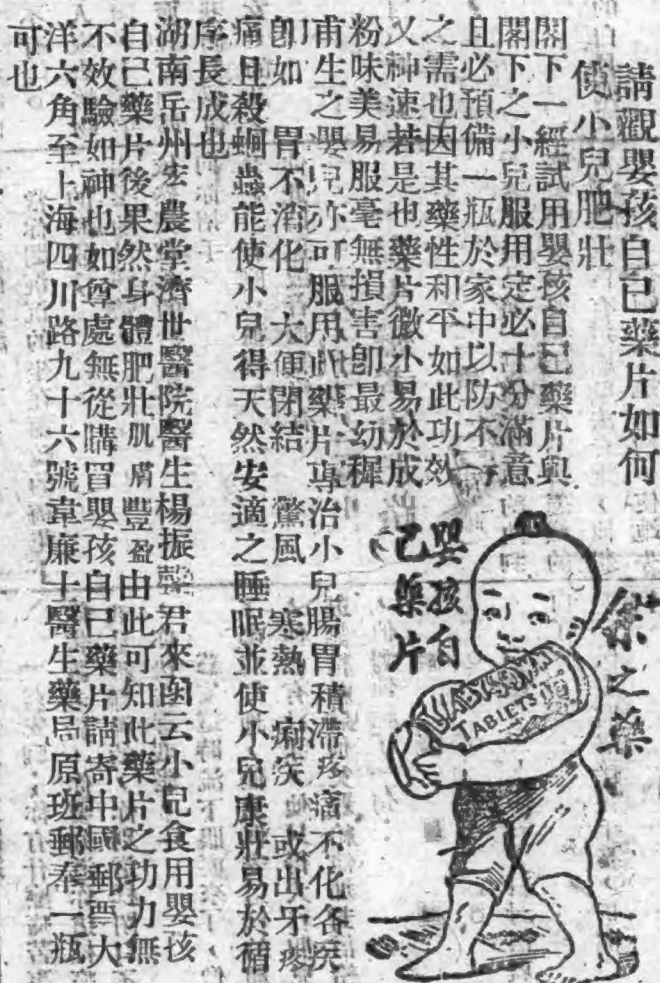 請觀嬰孩自己藥片如何
使小兒肥壯
閣下一經試用嬰孩自己藥片與
閣下之小兒服用定必十分滿意
且必預備一瓶於家中以防不時
之需也因其藥性和平如此功效
又神速若是也藥片微小易於成
粉味美易服毫無損害卽最幼穉
甫生之嬰兒亦可服用此藥片專治小兒腸胃積滯疼痛不化各疾
卽如 胃不消化 大便閉結 驚風 寒熱 痢疾 或出牙疼
痛且殺蛔蟲能使小兒得天然安適之睡眠並使小兒康壯易於循
序長成也
湖南岳州宏農堂濟世醫院醫生楊振聲君來函云小兒食用嬰孩
自己藥片後果然身體肥壯肌膚豐盈由此可知此藥片之功力無
不效驗如神也如尊處無從購買嬰孩自己藥片請寄中國郵票大
洋六角至上海四川路九十六號韋廉士醫生藥局原班郵奉一瓶
可也
之藥
BABY'S OWN
TABLETS
嬰孩自
己藥片